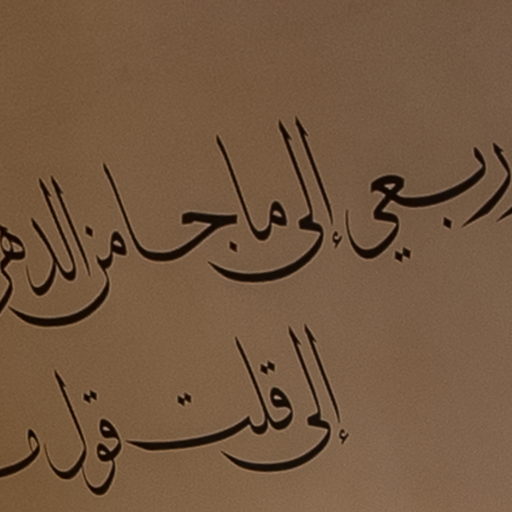 ربعي إلى ما جا من الدهر
إلى قلت قول